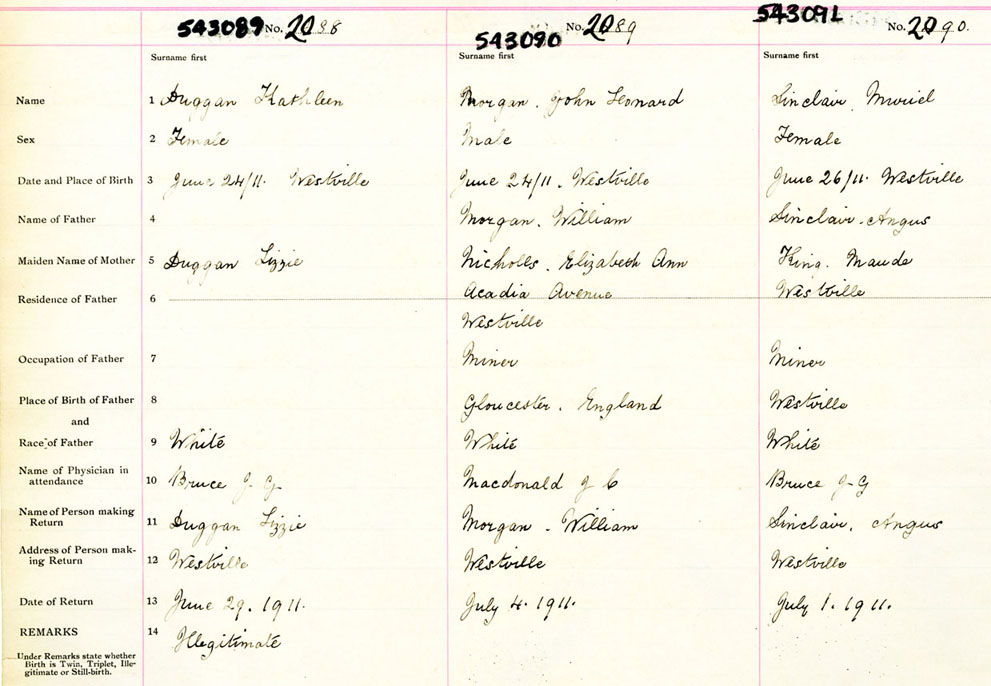 543089 No. 2088 543090 No. 2089 543091 No. 2090.
Surname first Surname first Surname first
Name 1 Duggan Kathleen Morgan. John Leonard Sinclair Muriel
Sex 2 Female Male Female
Date and Place of Birth 3 June 24/11. Westville June 24/11. Westville June 26/11. Westville
Name of Father 4 Morgan. William Sinclair. Angus
Maiden Name of Mother 5 Duggan Lizzie Nicholls. Elizabeth Ann King. Maude
Residence of Father 6 Acadia Avenue Westville
Westville
Occupation of Father 7 Miner Miner
Place of Birth of Father 8 Gloucester. England Westville
and
Race of Father 9 White White White
Name of Physician in
attendance 10 Bruce J-G Macdonald J C Bruce J-G
Name of Person making
Return 11 Duggan Lizzie Morgan - William Sinclair. Angus
Address of Person mak-
ing Return 12 Westville Westville Westville
Date of Return 13 June 29. 1911. July 4. 1911. July 1. 1911.
REMARKS 14 Illegitimate
Under Remarks state whether
Birth is Twin, Triplet, Ille-
gitimate or Still-birth.